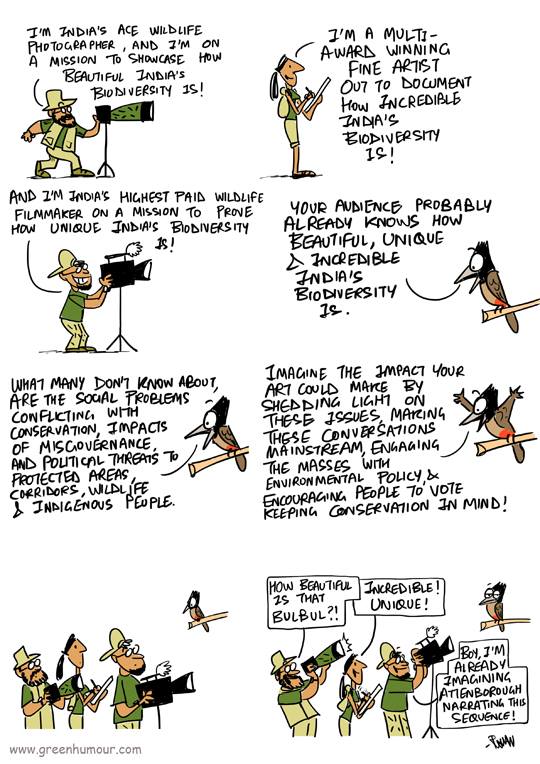 I'M INDIA'S ACE WILDLIFE
PHOTOGRAPHER, AND I'M ON
A MISSION TO SHOWCASE HOW
BEAUTIFUL INDIA'S
BIODIVERSITY IS!
I'M A MULTI-
AWARD WINNING
FINE ARTIST
OUT TO DOCUMENT
HOW INCREDIBLE
INDIA'S
BIODIVERSITY
IS!
AND I'M INDIA'S HIGHEST PAID WILDLIFE
FILMMAKER ON A MISSION TO PROVE
HOW UNIQUE INDIA'S BIODIVERSITY
IS!
YOUR AUDIENCE PROBABLY
ALREADY KNOWS HOW
BEAUTIFUL, UNIQUE
& INCREDIBLE
INDIA'S
BIODIVERSITY
IS.
WHAT MANY DON'T KNOW ABOUT,
ARE THE SOCIAL PROBLEMS
CONFLICTING WITH
CONSERVATION, IMPACTS
OF MISGOVERNANCE,
AND POLITICAL THREATS TO
PROTECTED AREAS,
CORRIDORS, WILDLIFE
& INDIGENOUS PEOPLE.
IMAGINE THE IMPACT YOUR
ART COULD MAKE BY
SHEDDING LIGHT ON
THESE ISSUES, MAKING
THESE CONVERSATIONS
MAINSTREAM, ENGAGING
THE MASSES WITH
ENVIRONMENTAL POLICY, &
ENCOURAGING PEOPLE TO VOTE
KEEPING CONSERVATION IN MIND!
HOW BEAUTIFUL
IS THAT
BULBUL?!
INCREDIBLE!
UNIQUE!
BOY, I'M
ALREADY
IMAGINING
ATTENBOROUGH
NARRATING THIS
SEQUENCE!
www.greenhumour.com